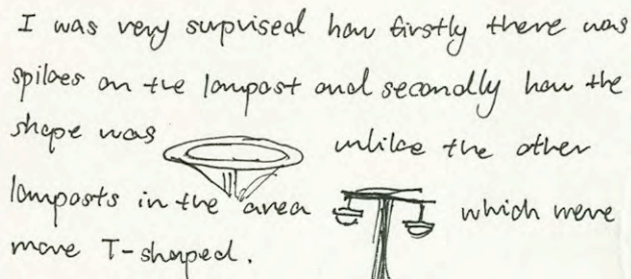 I was very suprised how firstly there was
spikes on the lampost and secondly how the
shape was unlike the other
lamposts in the area which were
more T-shaped.